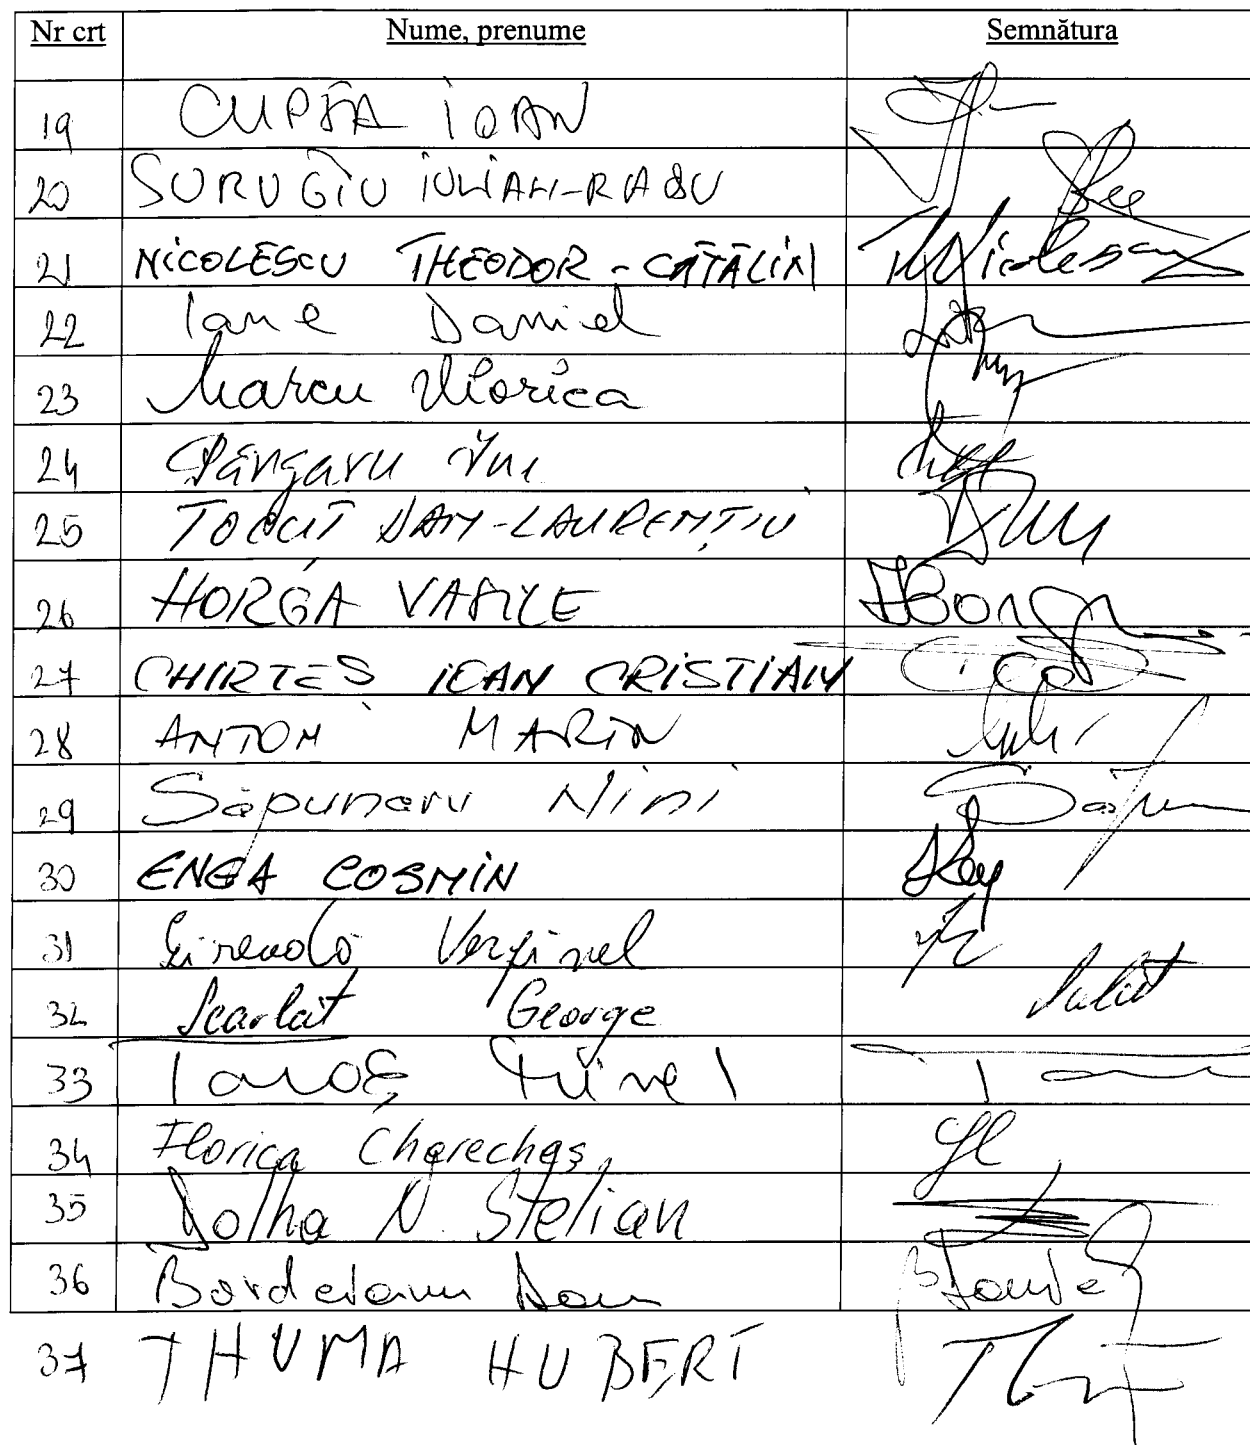 Nr crt Nume, prenume Semnătura
19 CUPȘA IOAN
20 SURUGIU IULIAN-RADU
21 NICOLESCU THEODOR-CĂTĂLIN ThNicolescu
22 Iane Daniel
23 Marcu Viorica
24 Pângaru
25 TOCUȚ DAN-LAURENȚIU
26 HORGA VASILE
27 CHIRTEȘ IOAN CRISTIAN
28 ANTON MARIN
29 Săpunaru Nini
30 ENEA COSMIN
31 Gireadă Verginel
32 Scarlat George
33 Taloș
34 Florica Cherecheș
35 Dolha N. Stelian
36 Bordeianu Dan
37 THUMA HUBERT